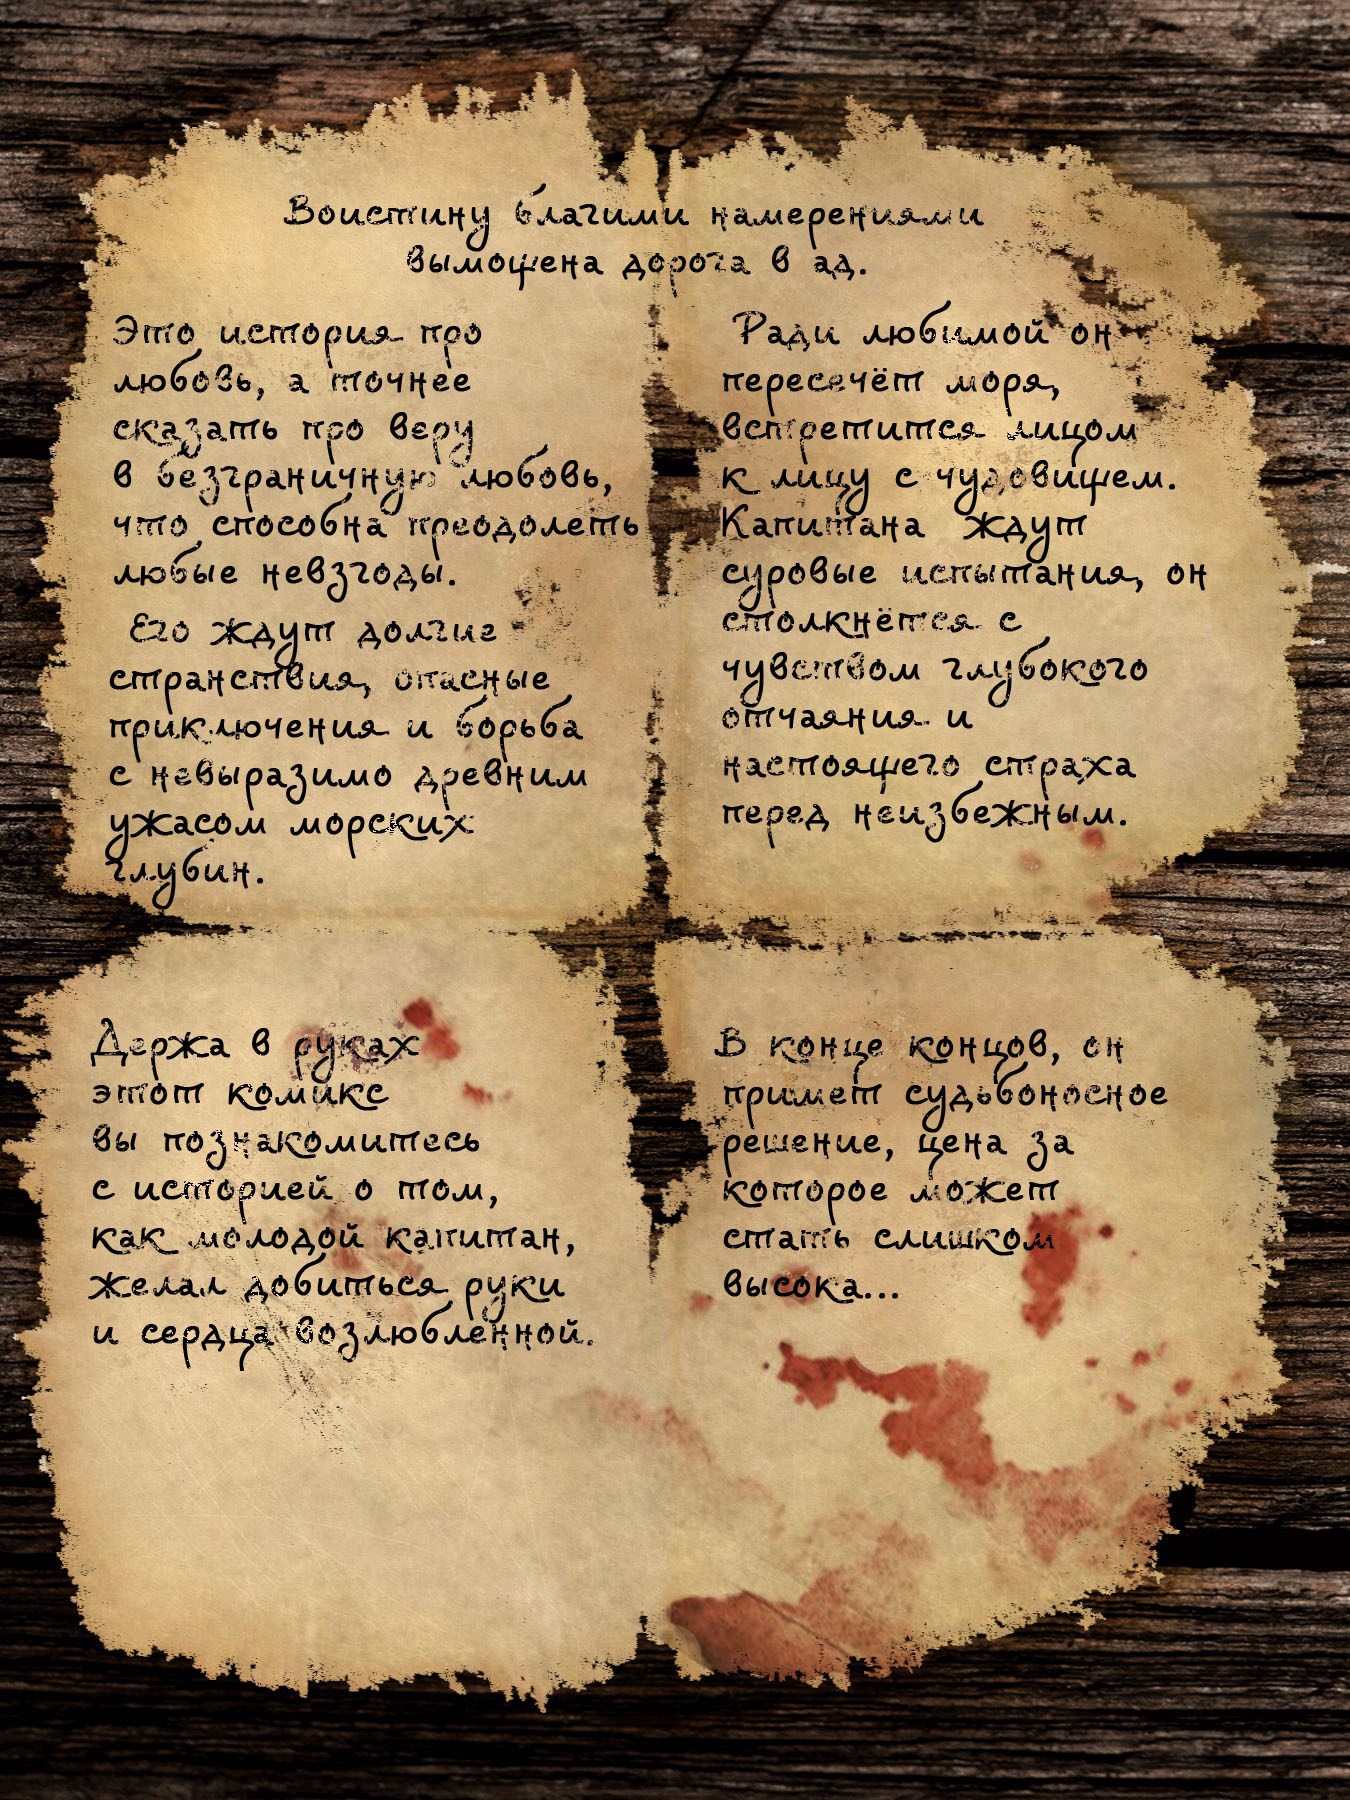 Воистину благими намерениями
вымощена дорога в ад.
Это история про
любовь, а точнее
сказать про веру
в безграничную любовь,
что способна преодолеть
любые невзгоды.
Его ждут долгие
странствия, опасные
приключения и борьба
с невыразимо древним
ужасом морских
глубин.
Ради любимой он
пересечёт моря,
встретится лицом
к лицу с чудовищем.
Капитана ждут
суровые испытания, он
столкнётся с
чувством глубокого
отчаяния и
настоящего страха
перед неизбежным.
Держа в руках
этот комикс
вы познакомитесь
с историей о том,
как молодой капитан,
желал добиться руки
и сердца возлюбленной.
В конце концов, он
примет судьбоносное
решение, цена за
которое может
стать слишком
высока...